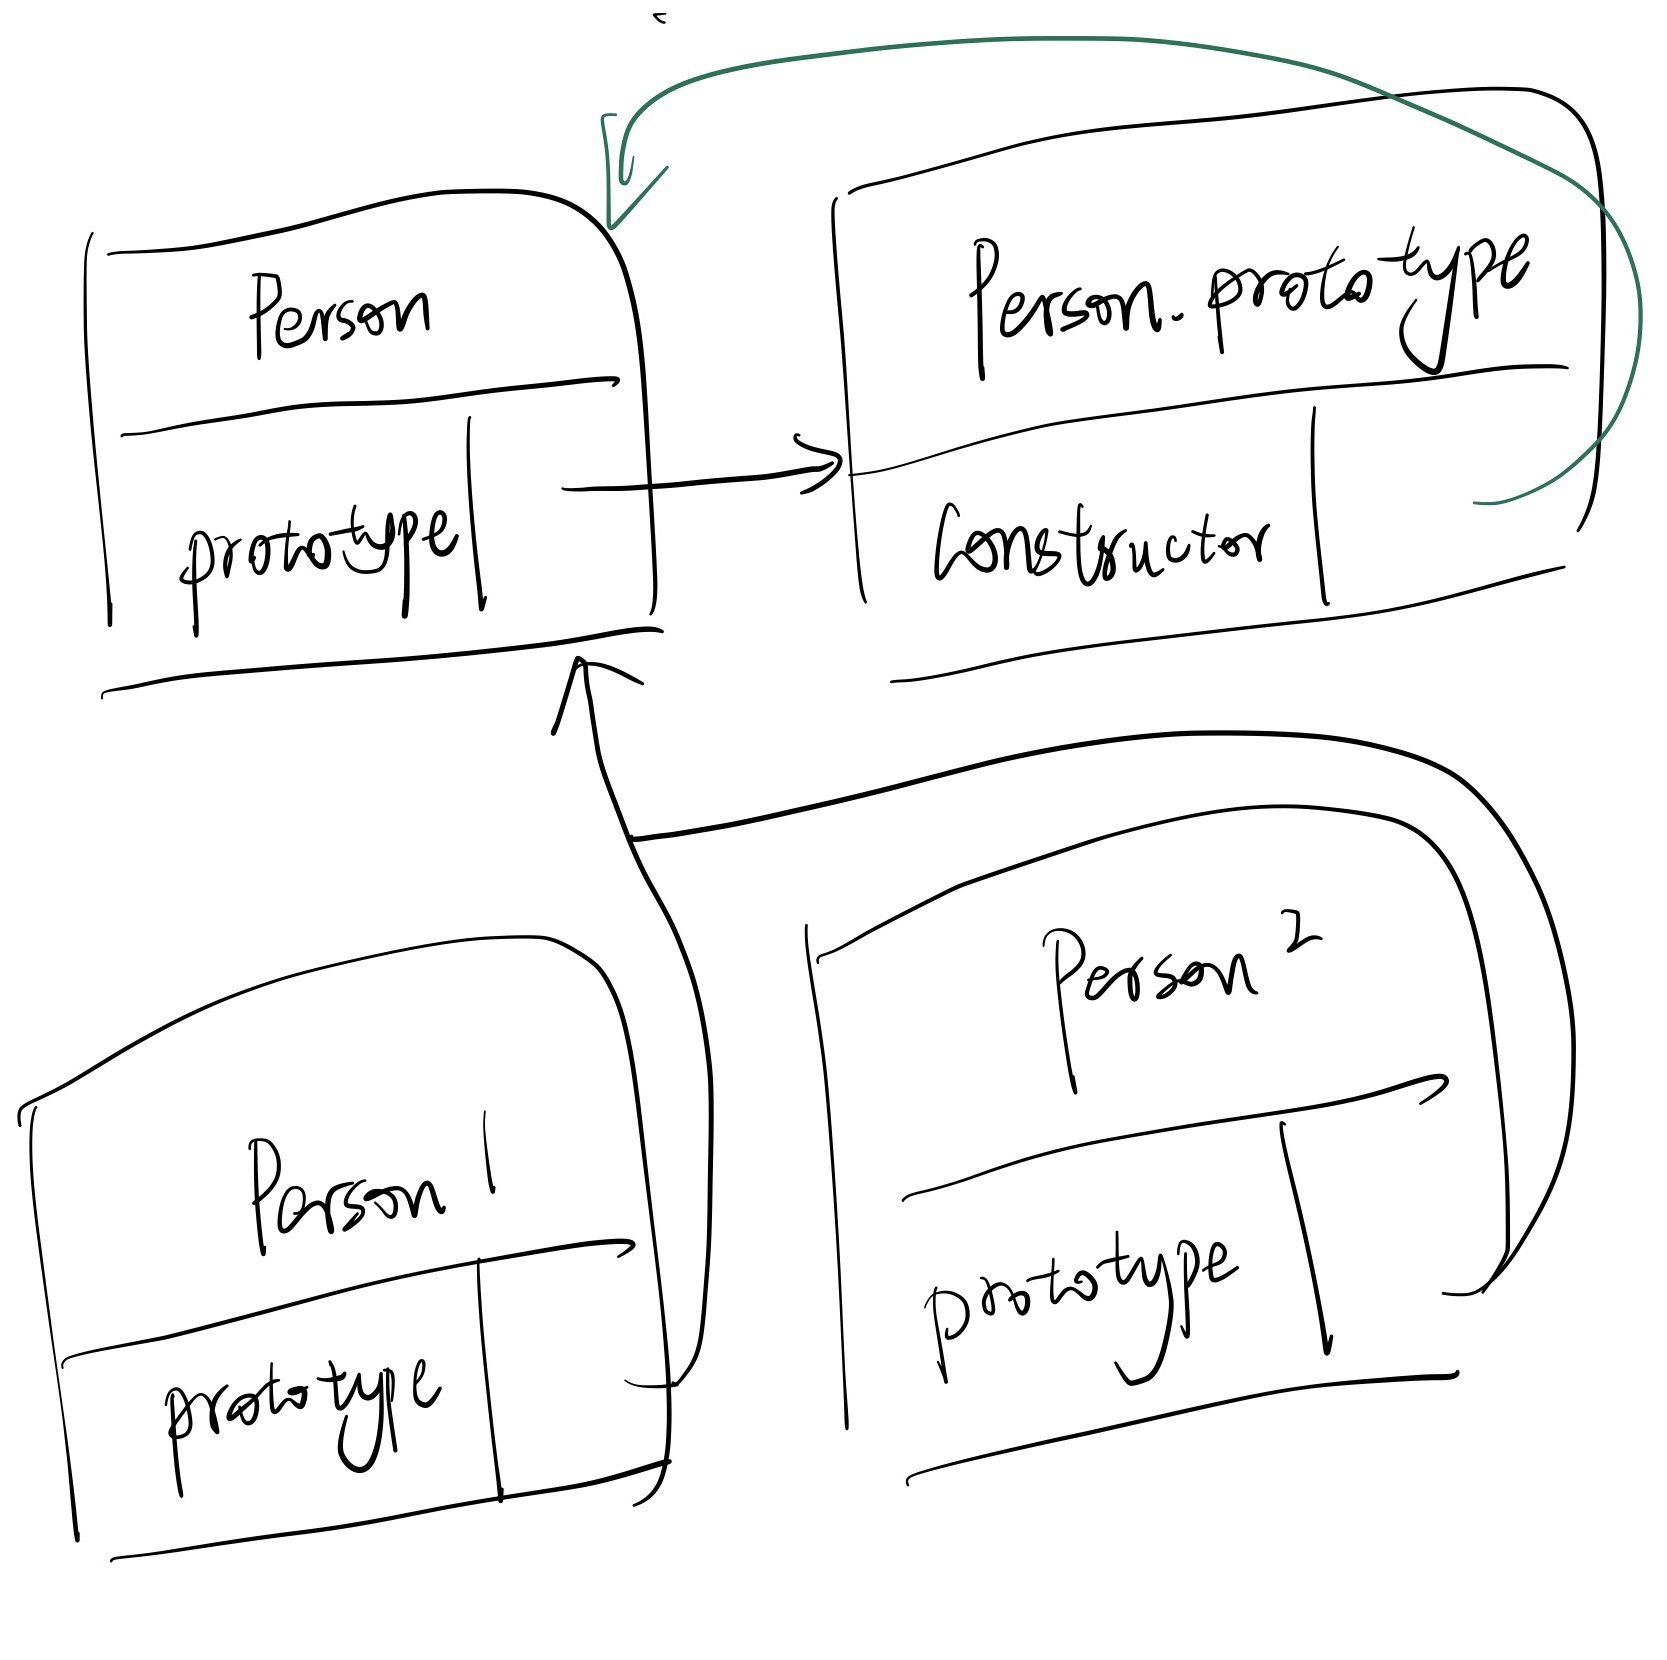 Person
prototype
Person.prototype
Constructor
Person 1
prototype
Person 2
prototype